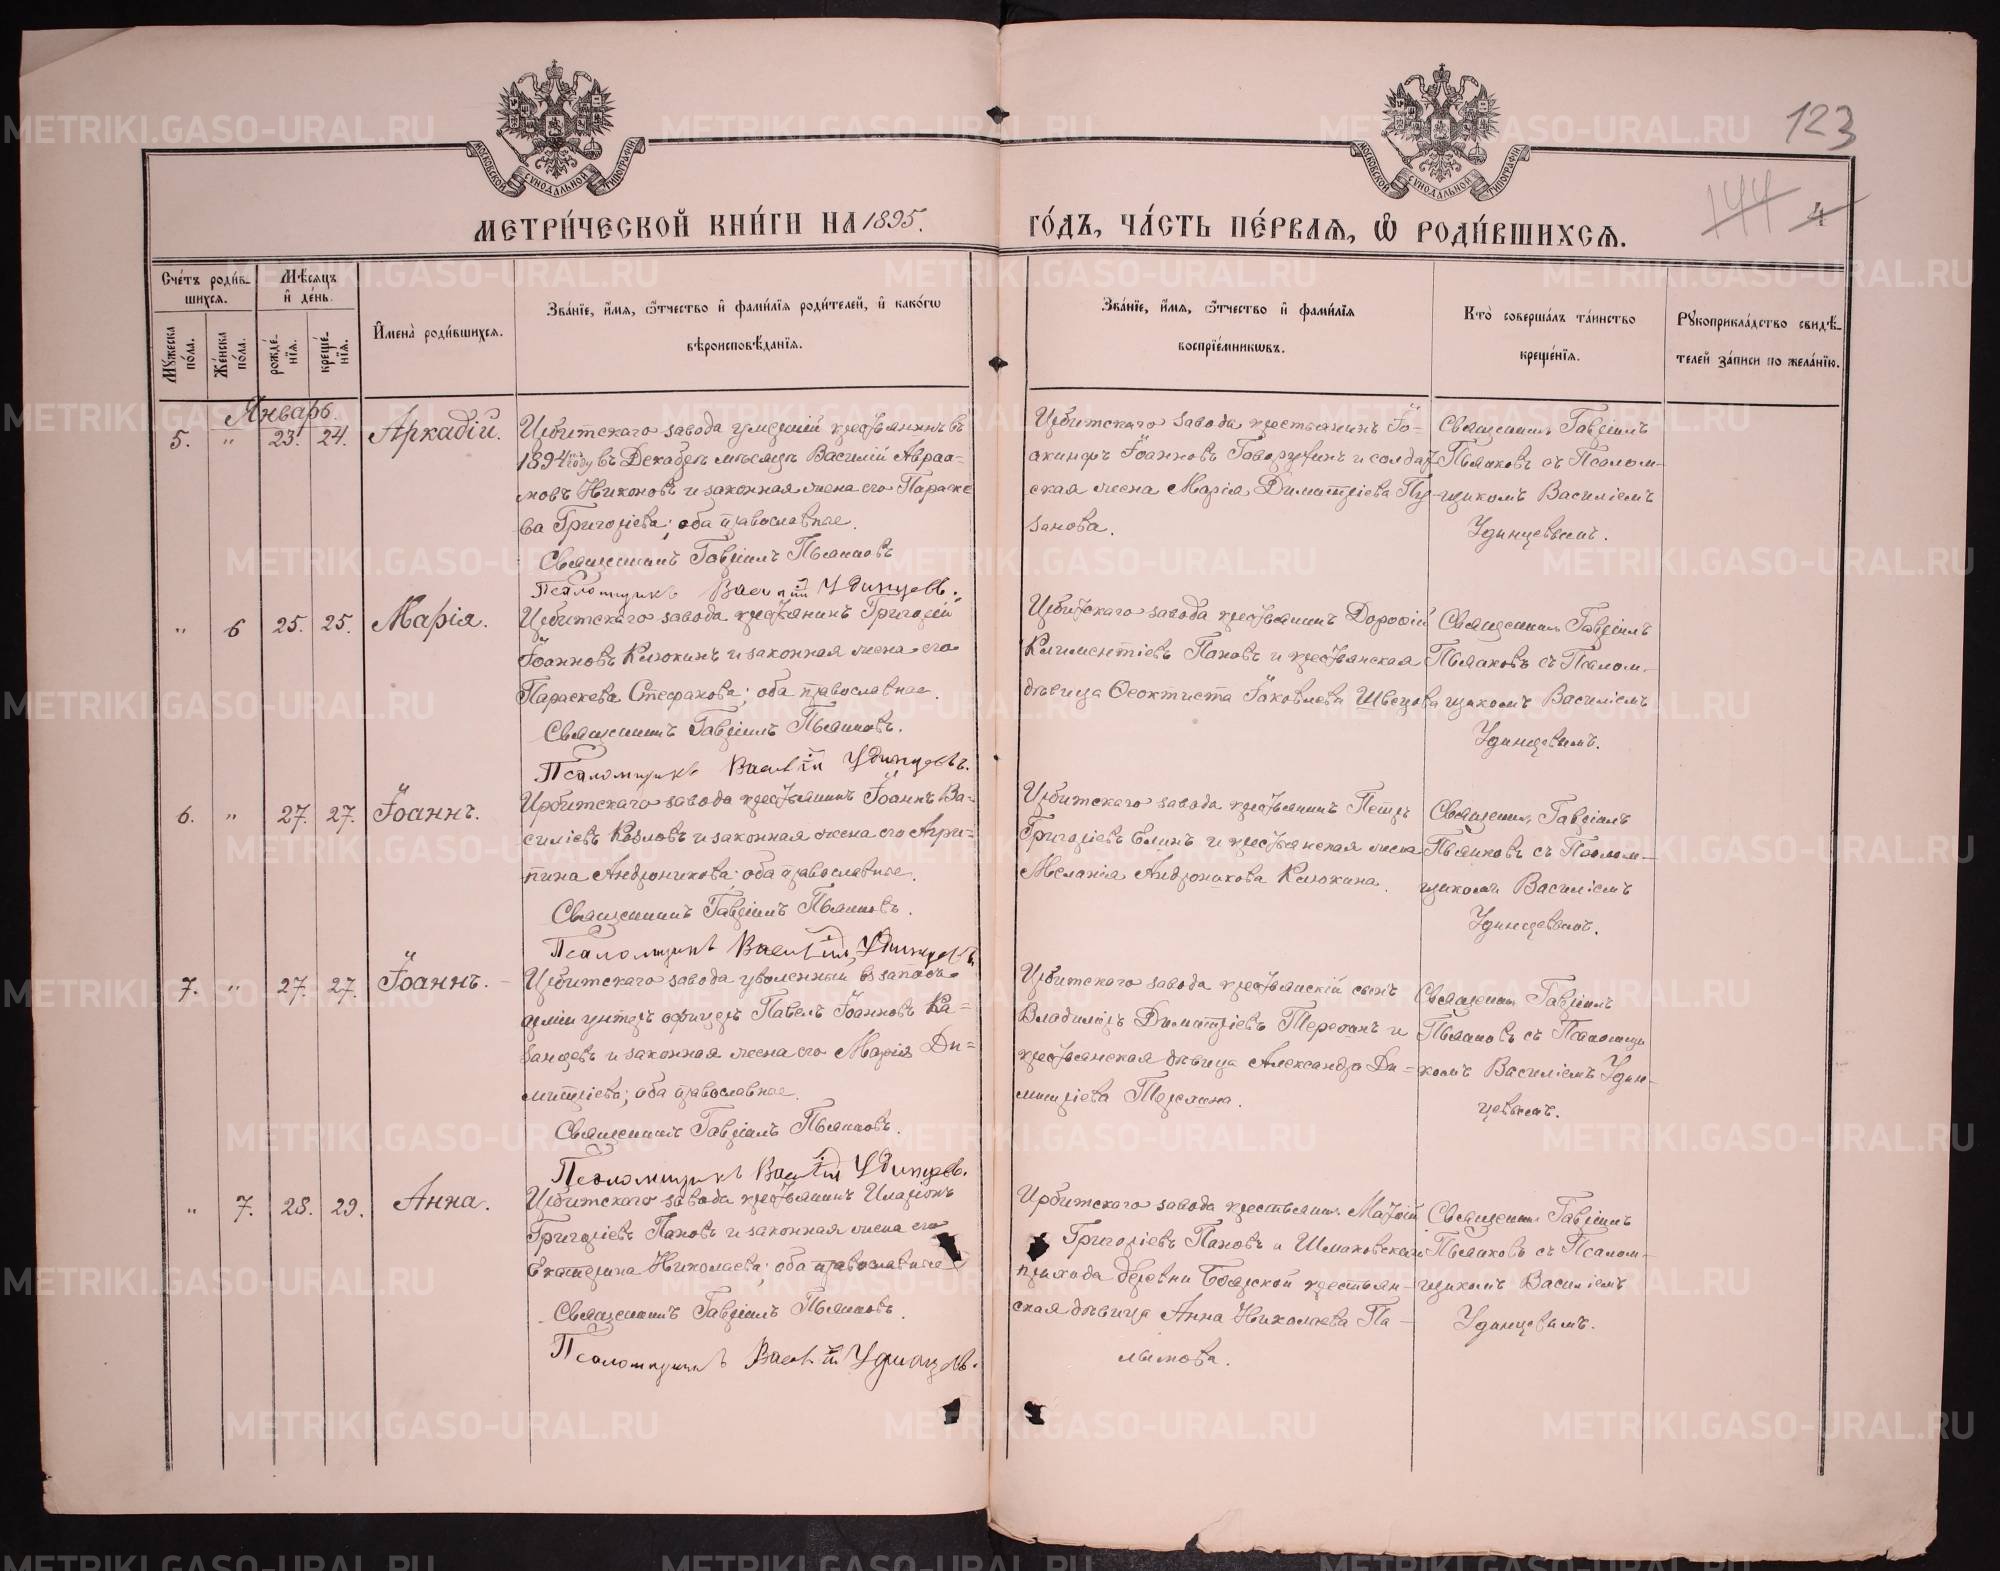 123
144 4
МОСКОВСКОЙ СѴНОДАЛЬНОЙ ТИПОГРАФІИ
МОСКОВСКОЙ СѴНОДАЛЬНОЙ ТИПОГРАФІИ
МЕТРИ́ЧЕСКОЙ КНИ́ГИ НА 1895. ГО́ДЪ, ЧА́СТЬ ПЕ́РВАѦ, Ѽ РОДИ́ВШИХСѦ.
Сче́тъ роди́вшихсѧ.
Мꙋжеска по́ла.
Же́нска по́ла.
Мѣ́сѧцъ и҆ де́нь.
рожде́нїѧ.
креще́нїѧ.
И҆мена̀ роди́вшихсѧ.
Зва́нїе, и҆́мѧ, ѻ҆́тчество и҆ фами́лїѧ роди́телей, и҆ како́гѡ
вѣроисповѣ́данїѧ.
Зва́нїе, и҆́мѧ, ѻ҆́тчество и҆ фами́лїѧ
воспрїе́мникѡвъ.
Кто̀ соверша́лъ та́инство
креще́нїѧ.
Рꙋкоприкла́дство свидѣ́-
телей за́писи по жела́нїю.
Январь.
5. " 23. 24. Аркадій.
Ирбитскаго завода умершій крестьянинъ въ
1894 году въ Декабрѣ мѣсяцѣ Василій Авраа-
мовъ Никоновъ и законная жена его Параске
ва Григоріева; оба православные.
Священникъ Гавріилъ Пьянковъ
Псаломщикъ Василій Удинцевъ.
Ирбитскаго завода крестьянинъ Іо-
акимъ Іоанновъ Говорухинъ и солдат-
ская жена Марія Димитріева Пу-
занова.
Священникъ Гавріилъ
Пьянковъ съ Псалом-
щикомъ Василіемъ
Удинцевымъ.
" 6 25. 25. Марія.
Ирбитскаго завода крестьянинъ Григорій
Іоанновъ Клюкинъ и законная жена его
Параскева Стефанова; оба православные.
Священникъ Гавріилъ Пьянковъ.
Псаломщикъ Василій Удинцевъ.
Ирбитскаго завода крестьянинъ Дорофій
Климентіевъ Пановъ и крестьянская
дѣвица Феоктиста Іаковлева Швецова
Священникъ Гавріилъ
Пьянковъ съ Псалом-
щикомъ Василіемъ
Удинцевымъ.
6. " 27. 27. Іоаннъ.
Ирбитскаго завода крестьянинъ Іоаннъ Ва-
силіевъ Козловъ и законная жена его Агри-
пина Андроникова; оба православные.
Священникъ Гавріилъ Пьянковъ.
Псаломщикъ Василій Удинцевъ.
Ирбитскаго завода крестьянинъ Петръ
Григоріевъ Елинъ и крестьянская жена
Меланія Андроникова Клюкина.
Священникъ Гавріилъ
Пьянковъ съ Псалом-
щикомъ Василіемъ
Удинцевымъ.
7. " 27. 27. Іоаннъ.
Ирбитскаго завода уволенный въ запасъ
арміи унтеръ офицеръ Павелъ Іоанновъ Ка-
занцевъ и законная жена его Марія Ди-
митріева; оба православные.
Священникъ Гавріилъ Пьянковъ.
Псаломщикъ Василій Удинцевъ.
Ирбитскаго завода крестьянскій сынъ
Владиміръ Димитріевъ и
крестьянская дѣвица Александра Ди-
митріева
Священникъ Гавріилъ
Пьянковъ съ Псаломщи
комъ Василіемъ Удин-
цевымъ.
" 7. 28. 29. Анна.
Ирбитскаго завода крестьянинъ Иларіонъ
Григоріевъ Пановъ и законная жена его
Екатерина Николаева; оба православные
Священникъ Гавріилъ Пьянковъ.
Псаломщикъ Василій Удинцевъ.
Ирбитскаго завода крестьянинъ Матѳій
Григоріевъ Пановъ и Шмаковскаго
прихода деревни Боярской крестьян-
ская дѣвица Анна Николаева Па-
лымова.
Священникъ Гавріилъ
Пьянковъ съ Псалом-
щикомъ Василіемъ
Удинцевымъ.
METRIKI.GASO-URAL.RU